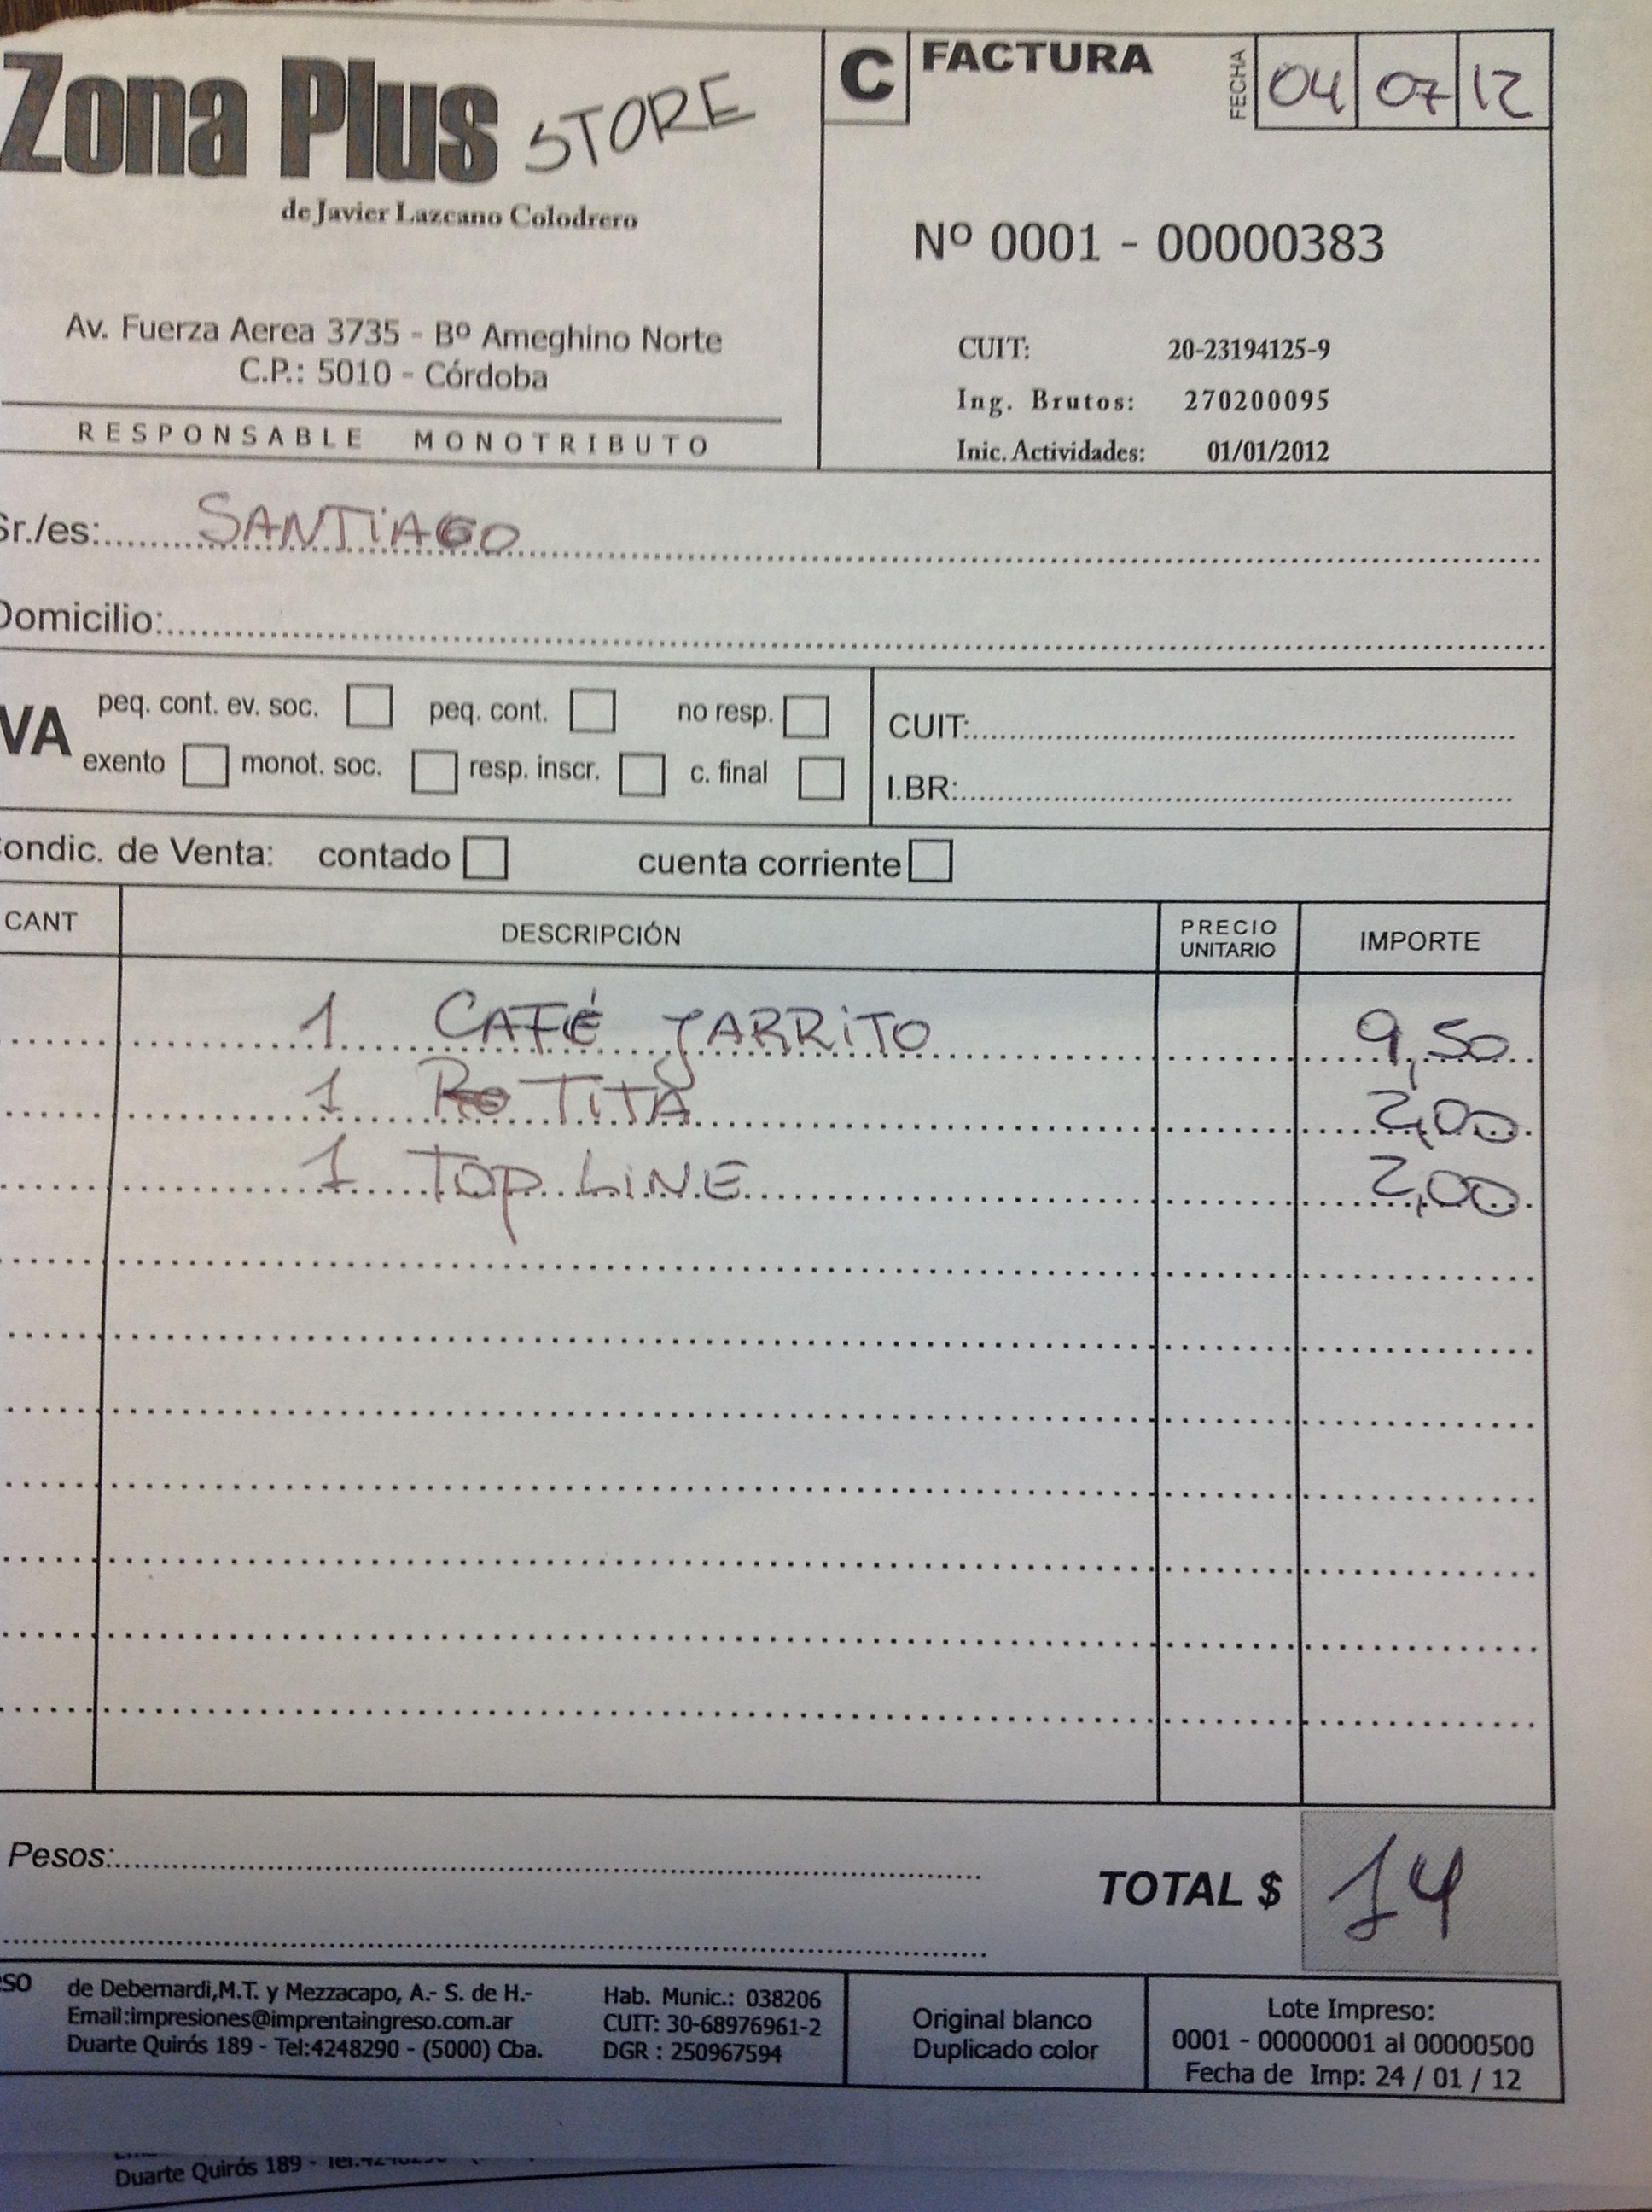 Zona Plus STORE
de Javier Lazcano Colodrero
Av. Fuerza Aerea 3735 - Bº Ameghino Norte
C.P.: 5010 - Córdoba
RESPONSABLE MONOTRIBUTO
C FACTURA
FECHA 04 07 12
Nº 0001 - 00000383
CUIT: 20-23194125-9
Ing. Brutos: 270200095
Inic. Actividades: 01/01/2012
Sr./es: SANTIAGO
Domicilio:
VA
peq. cont. ev. soc. peq. cont. no resp.
exento monot. soc. resp. inscr. c. final
CUIT:
I.BR:
ondic. de Venta: contado cuenta corriente
CANT DESCRIPCIÓN PRECIO UNITARIO IMPORTE
1 CAFÉ JARRITO 9,50
1 TITA 2,00
1 TOP LINE 2,00
Pesos:
TOTAL $ 14
SO de Debernardi,M.T. y Mezzacapo, A.- S. de H.-
Email:impresiones@imprentaingreso.com.ar
Duarte Quirós 189 - Tel:4248290 - (5000) Cba.
Hab. Munic.: 038206
CUIT: 30-68976961-2
DGR : 250967594
Original blanco
Duplicado color
Lote Impreso:
0001 - 00000001 al 00000500
Fecha de Imp: 24 / 01 / 12
Duarte Quirós 189 -